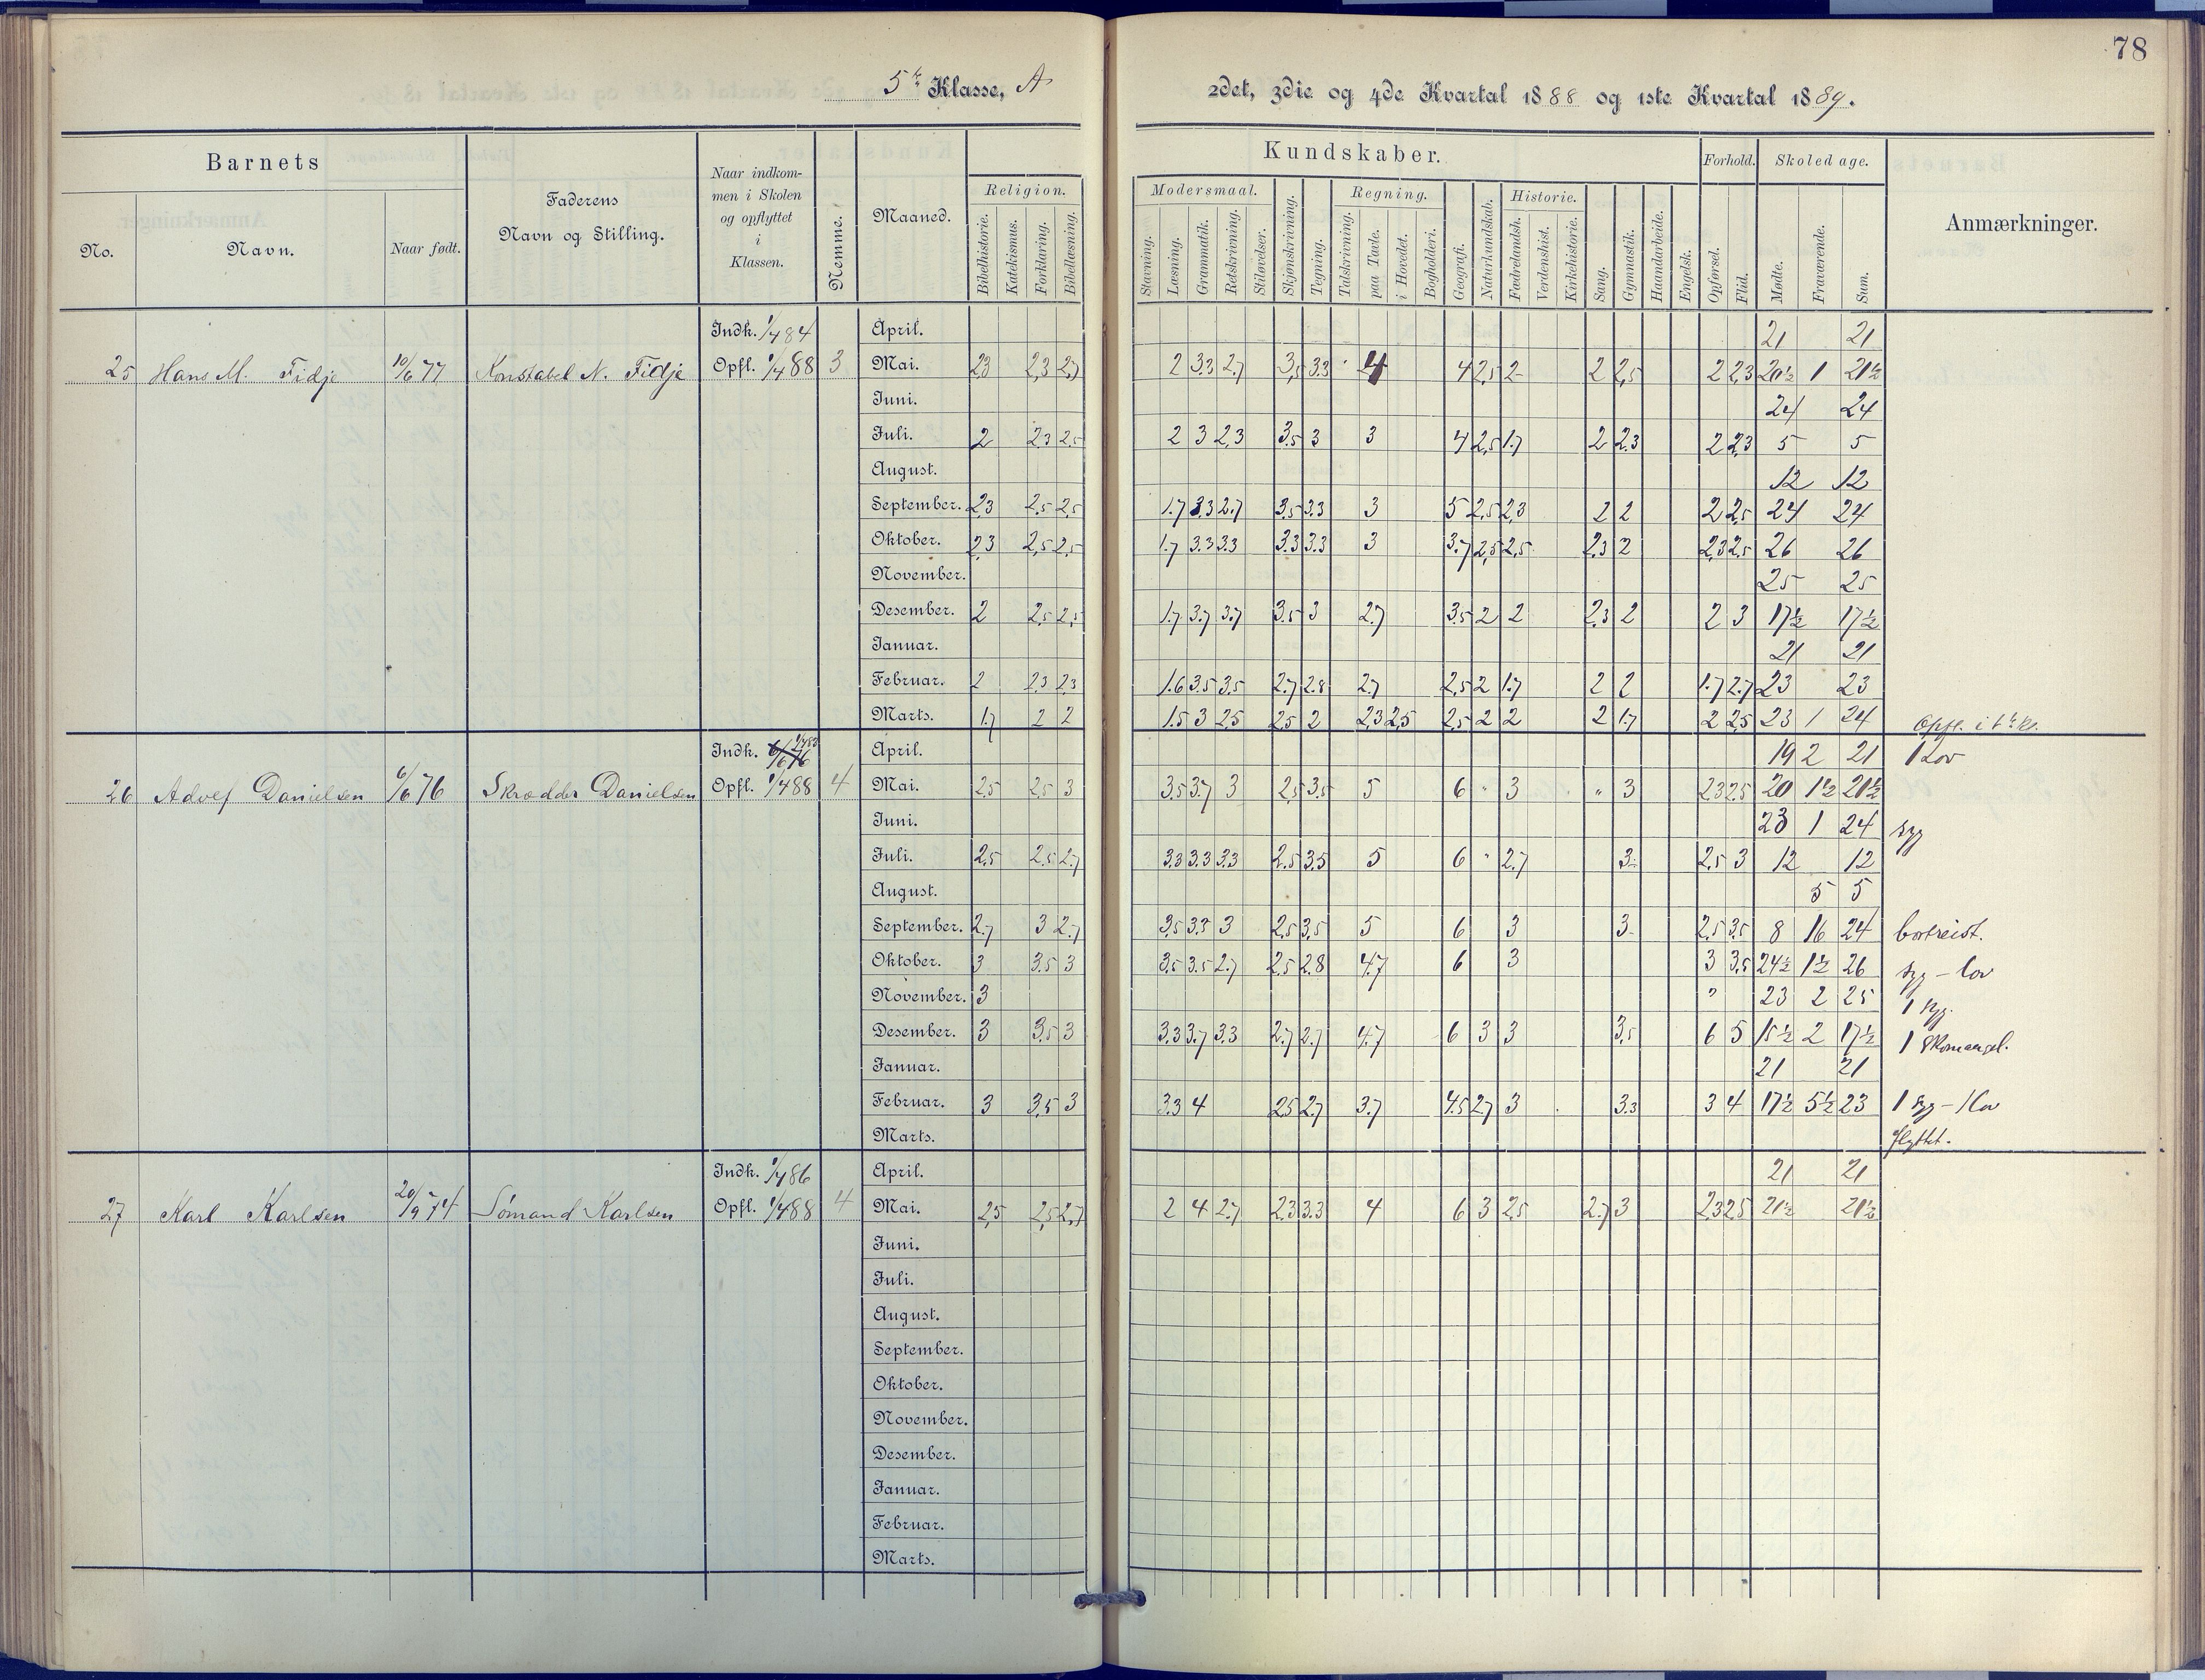 78
5te Klasse, A
2det, 3die og 4de Kvartal 1888 og 1ste Kvartal 1889.
Barnets
No.
Navn.
Naar født.
Faderens
Navn og Stilling.
Naar indkom-
men i Skolen
og opflyttet
i
Klassen.
Nemme.
Maaned.
Religion.
Bibelhistorie.
Katekismus.
Forklaring.
Bibellæsning.
Kundskaber.
Modersmaal.
Stavning.
Læsning.
Grammatik.
Retskrivning.
Stiløvelser.
Skjønskrivning.
Tegning.
Regning.
Talskrivning.
paa Tavle.
i Hovedet.
Bogholderi.
Geografi.
Naturkundskab.
Historie.
Fædrelandsh.
Verdenshist.
Kirkehistorie.
Sang.
Gymnastik.
Haandarbeide.
Engelsk.
Forhold.
Opførsel.
Flid.
Skoledage.
Mødte.
Fraværende.
Sum.
Anmærkninger.
25 Hans M. Fidje 10/6 77 Konstabel N. Fidje Indk. 1/4 84 Opfl. 1/4 88 3
April. 21 21
Mai. 2,3 2,3 2,7 2 3.3 2.7 3,5 3.3 4 4 2,5 2 2 2,5 2 2,3 20½ 1 21½
Juni. 24 24
Juli. 2 2,3 2,5 2 3 2,3 3.5 3 3 4 2,5 1.7 2 2.3 2 2,3 5 5
August. 12 12
September. 2,3 2,5 2,5 1.7 3.3 2.7 3,5 3.3 3 5 2,5 2,3 2 2 2 2,5 24 24
Oktober. 2,3 2,5 2,5 1.7 3.3 3.3 3.3 3.3 3 3.7 2,5 2,5 2.3 2 2,3 2,5 26 26
November. 25 25
Desember. 2 2,5 2,5 1.7 3.7 3.7 3.5 3 2.7 3.5 2 2 2.3 2 2 3 17½ 17½
Januar. 21 21
Februar. 2 2,3 2,3 1.6 3.5 3.5 2.7 2.8 2.7 2,5 2 1.7 2 2 1.7 2.7 23 23
Marts. 1.7 2 2 1.5 3 2.5 2.5 2 2.3 2.5 2.5 2 2 2 1.7 2 2.5 23 1 24 Opfl. i 6te Kl.
26 Adolf Danielsen 6/6 76 Skrædder Danielsen Indk. 1/4 83 Opfl. 1/4 88 4
April. 19 2 21 1 Lov
Mai. 2.5 2.5 3 3.5 3.7 3 2,5 3.5 5 6 " 3 " 3 2.3 2.5 20 1½ 21½
Juni. 23 1 24 syg
Juli. 2,5 2,5 2.7 3.3 3.3 3.3 2.5 3.5 5 6 " 2.7 3 2,5 3 12 12
August. 5 5
September. 2.7 3 2.7 3.5 3.3 3 2.5 3.5 5 6 3 3 2,5 3.5 8 16 24 bortreist.
Oktober. 3 3.5 3 3.5 3.5 2.7 2.5 2.8 4.7 6 3 3 3,5 24½ 1½ 26 syg - lov
November. 3 " 23 2 25 1 syg.
Desember. 3 3.5 3 3.3 3.7 3.3 2.7 2.7 4.7 6 3 3 3.5 6 5 15½ 2 17½ 1 Skomangel.
Januar. 21 21
Februar. 3 3,5 3 3.3 4 2.5 2.7 3.7 4.5 2.7 3 3.3 3 4 17½ 5½ 23 1 syg - 1 lov
Marts. flyttet.
27 Karl Karlsen 20/9 74 Sømand Karlsen Indk. 1/4 86 Opfl. 1/4 88 4
April. 21 21
Mai. 2,5 2,5 2,7 2 4 2.7 2.3 3.3 4 6 3 2,5 2.7 3 2.3 2.5 21½ 21½
Juni.
Juli.
August.
September.
Oktober.
November.
Desember.
Januar.
Februar.
Marts.